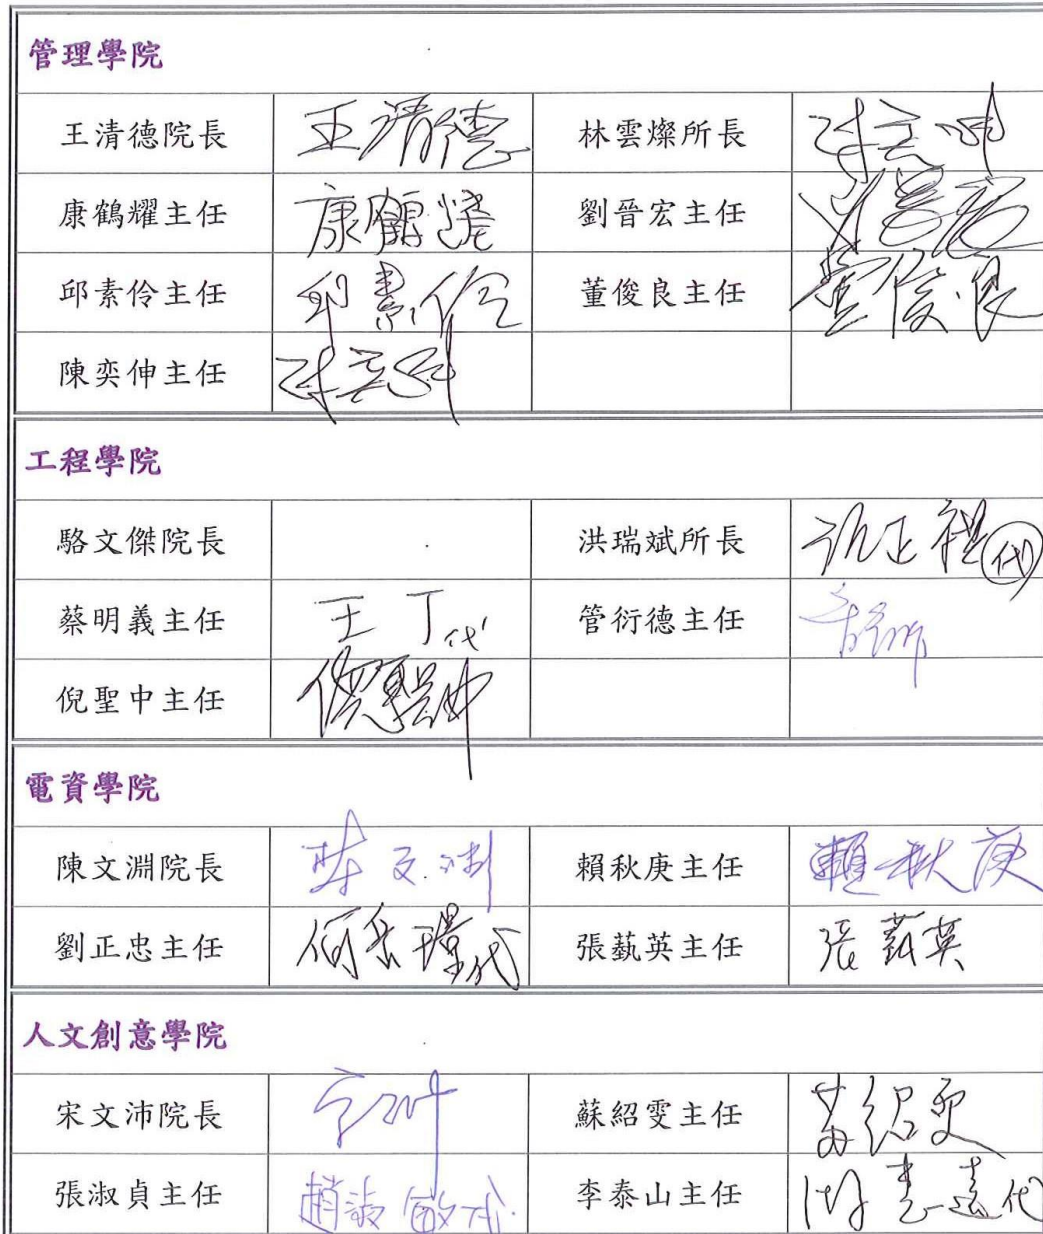 管理學院
王清德院長 王清德 林雲燦所長
康鶴耀主任 康鶴耀 劉晉宏主任
邱素伶主任 邱素伶 董俊良主任 董俊良
陳奕伸主任
工程學院
駱文傑院長 洪瑞斌所長 代
蔡明義主任 王丁代 管衍德主任
倪聖中主任 倪聖中
電資學院
陳文淵院長 賴秋庚主任 賴秋庚
劉正忠主任 代 張蓺英主任 張蓺英
人文創意學院
宋文沛院長 蘇紹雯主任 蘇紹雯
張淑貞主任 趙淑 代 李泰山主任 代